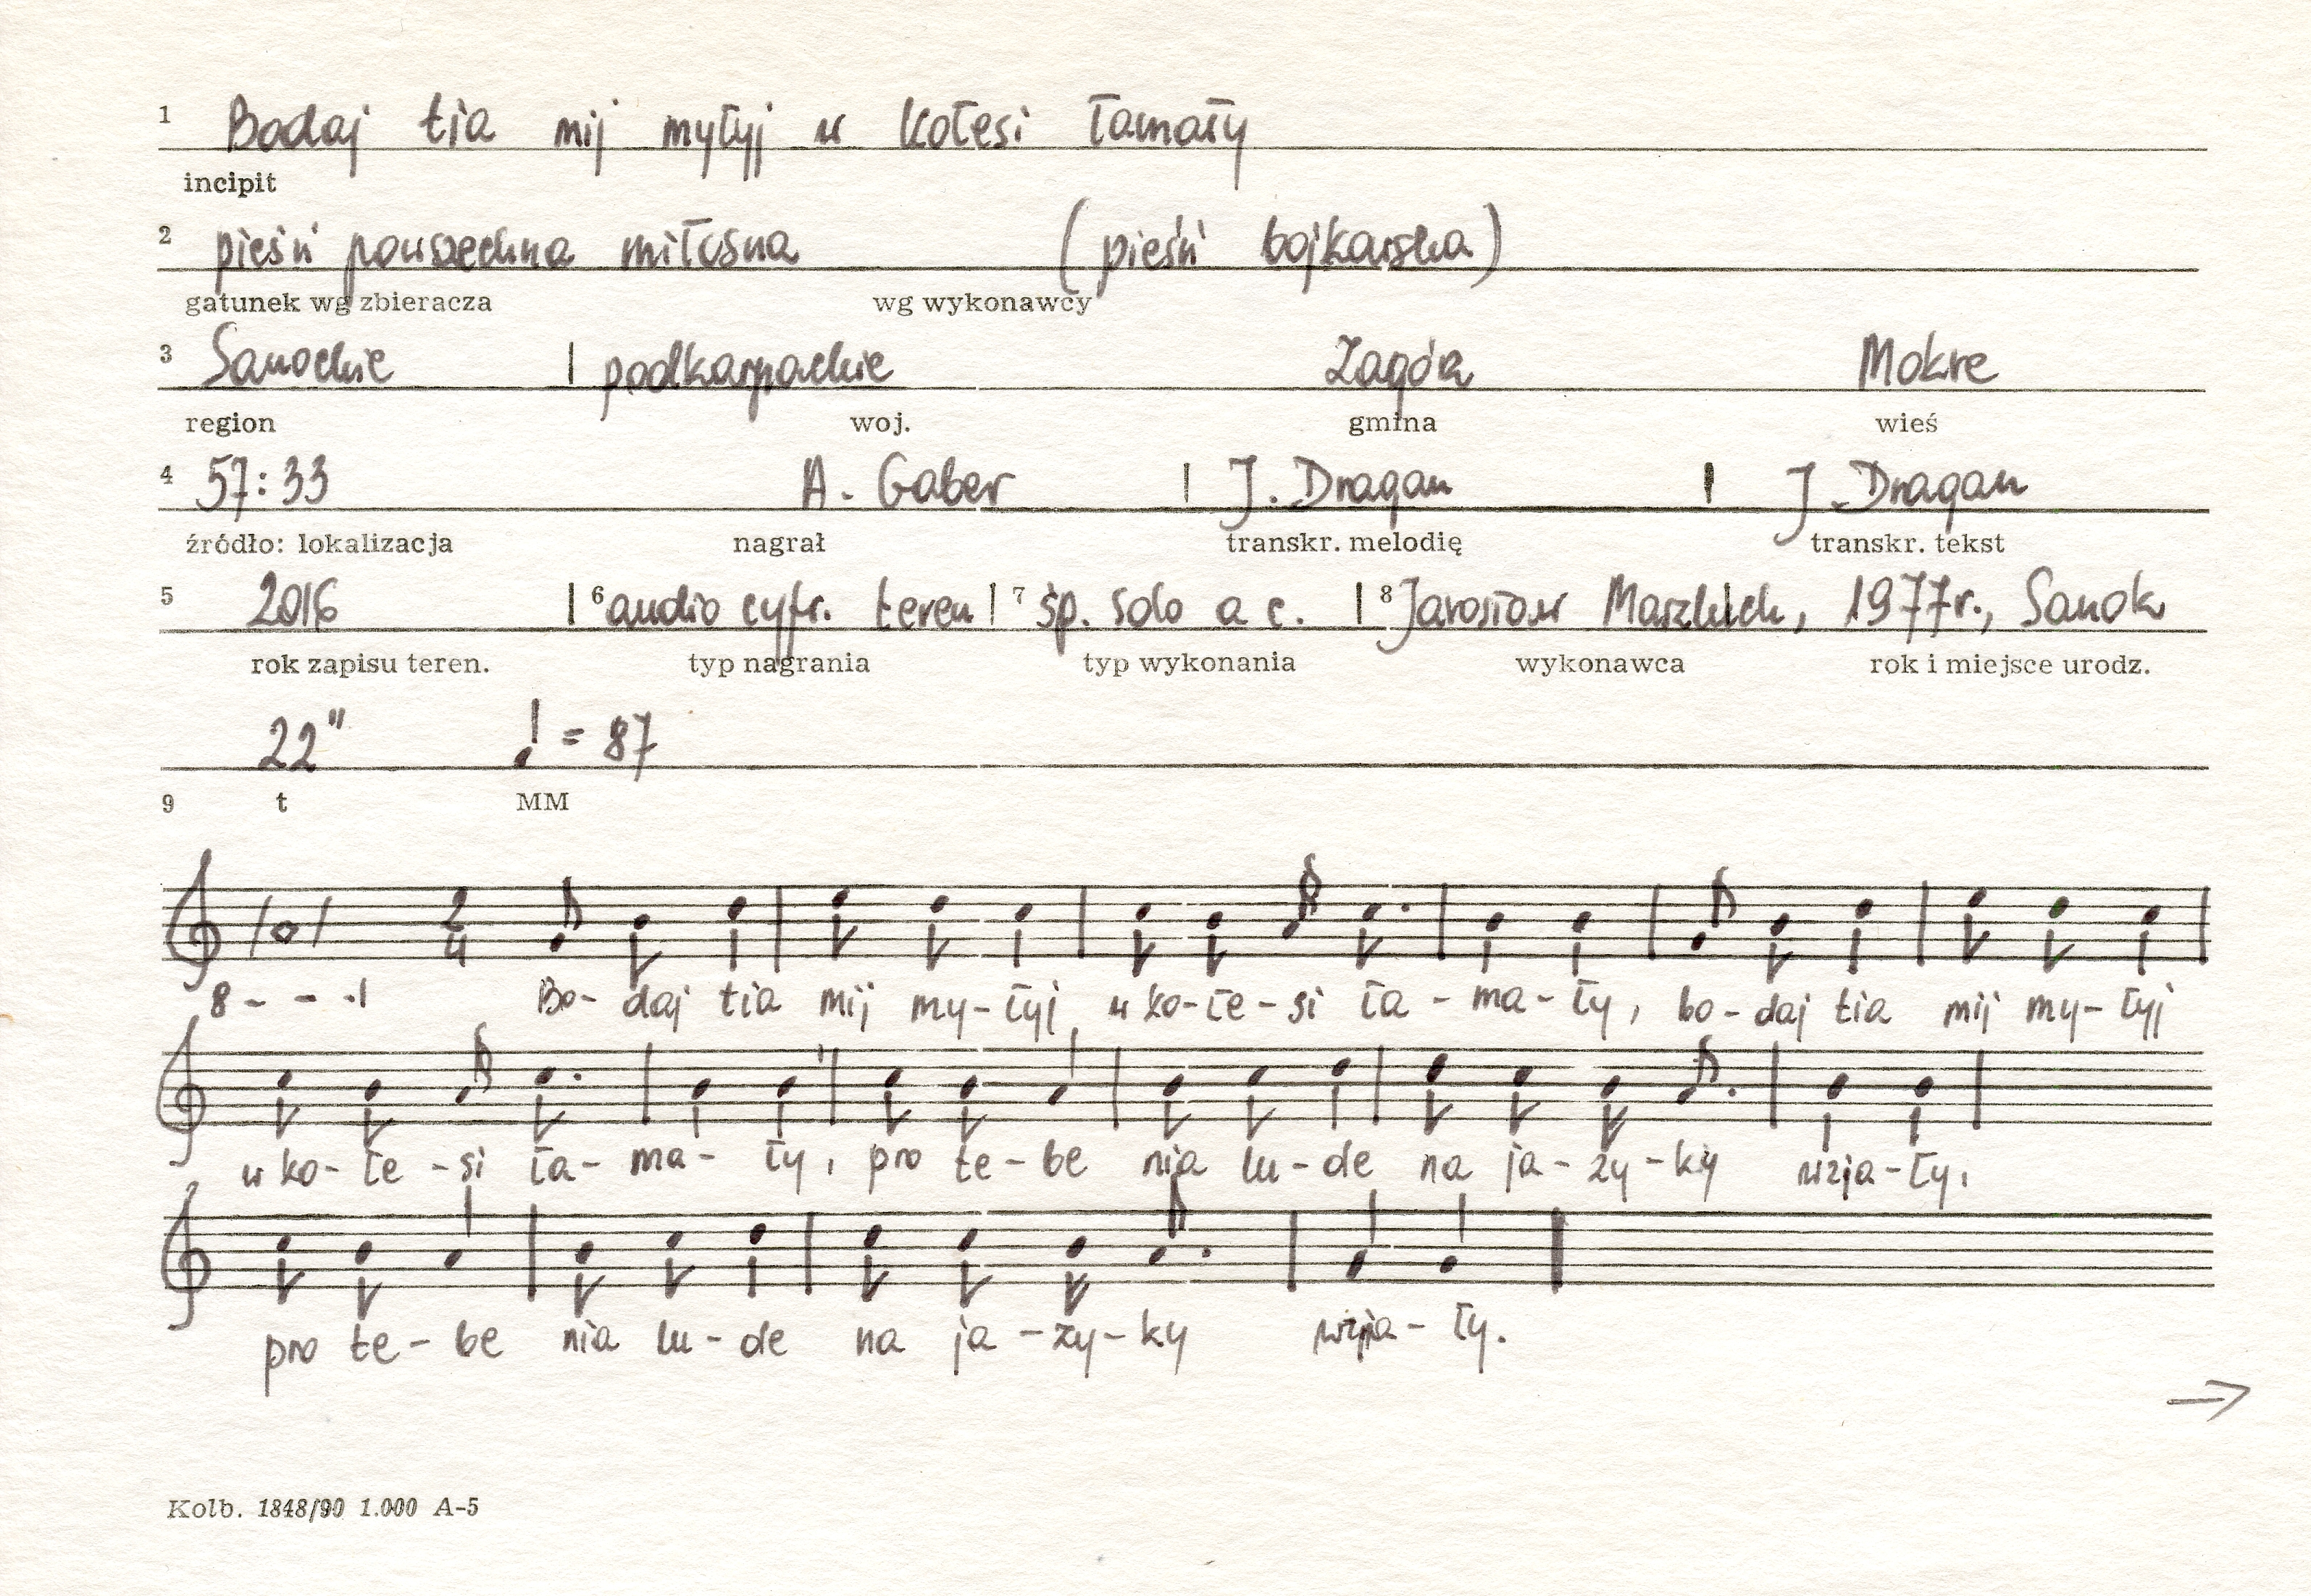 1 Bodaj tia mij myłyj w kołesi łamały
incipit
2 pieśń powszechna miłosna (pieśń bojkowska)
gatunek wg zbieracza wg wykonawcy
3 Sanockie | podkarpackie Zagórz Mokre
region woj. gmina wieś
4 57:33 A. Gaber | J. Dragan | J. Dragan
źródło: lokalizacja nagrał transkr. melodię transkr. tekst
5 2016 | 6 audio cyfr. teren | 7 śp. solo a c. | 8 Jarosław 1977r., Sanok
rok zapisu teren. typ nagrania typ wykonania wykonawca rok i miejsce urodz.
22" ♩ = 87
9 t MM
2
4
8 - - .|
Bo- daj tia mij my-łyj w ko-łe-si ła-ma-ły, bo-daj tia mij my-łyj
w ko-łe-si ła-ma-ły, pro te-be nia lu-de na ja-zy-ky wzja-ły,
pro te-be nia lu-de na ja-zy-ky wzja-ły.
→
Kolb. 1848/90 1.000 A-5